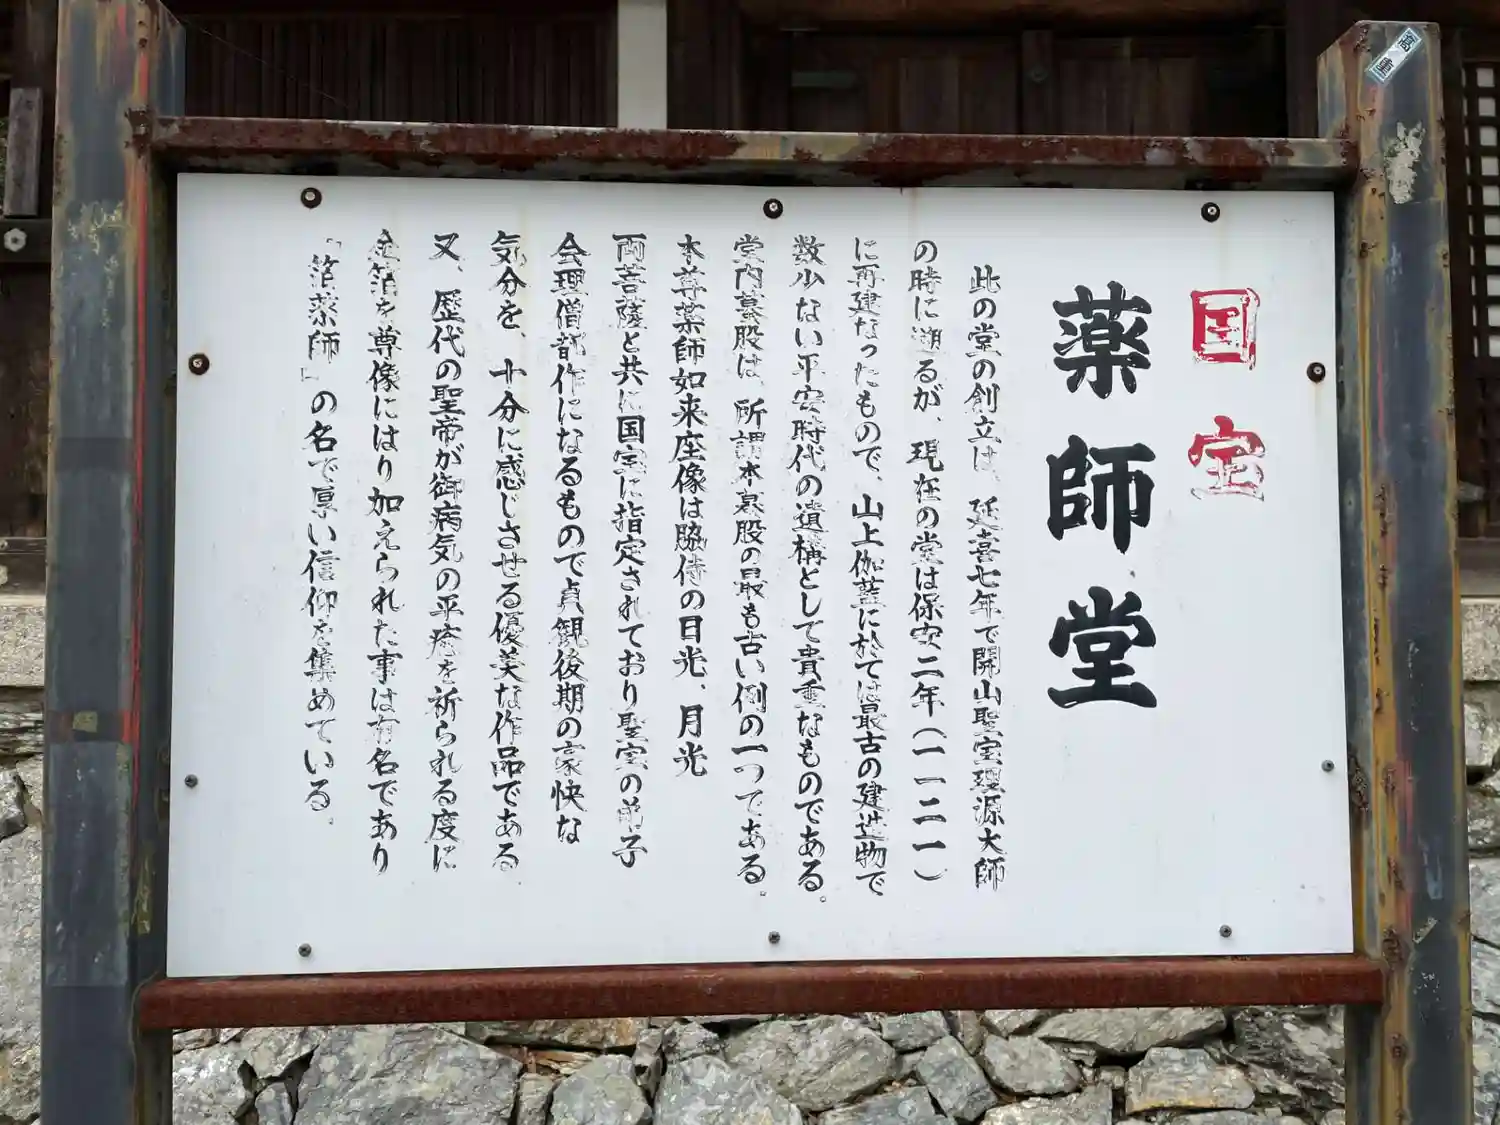 国宝
薬師堂
此の堂の創立は、延喜七年で開山聖宝理源大師
の時に遡るが、現在の堂は保安二年(一一二一)
に再建なったもので、山上伽藍に於ては最古の建造物で
数少ない平安時代の遺構として貴重なものである。
堂内蟇股は、所謂本蟇股の最も古い例の一つである。
本尊薬師如来座像は脇侍の日光、月光
両菩薩と共に国宝に指定されており聖宝の弟子
会理僧都作になるもので貞観後期の豪快な
気分を、十分に感じさせる優美な作品である
又、歴代の聖帝が御病気の平癒を祈られる度に
金箔を尊像にはり加えられた事は有名であり
「箔薬師」の名で厚い信仰を集めている。